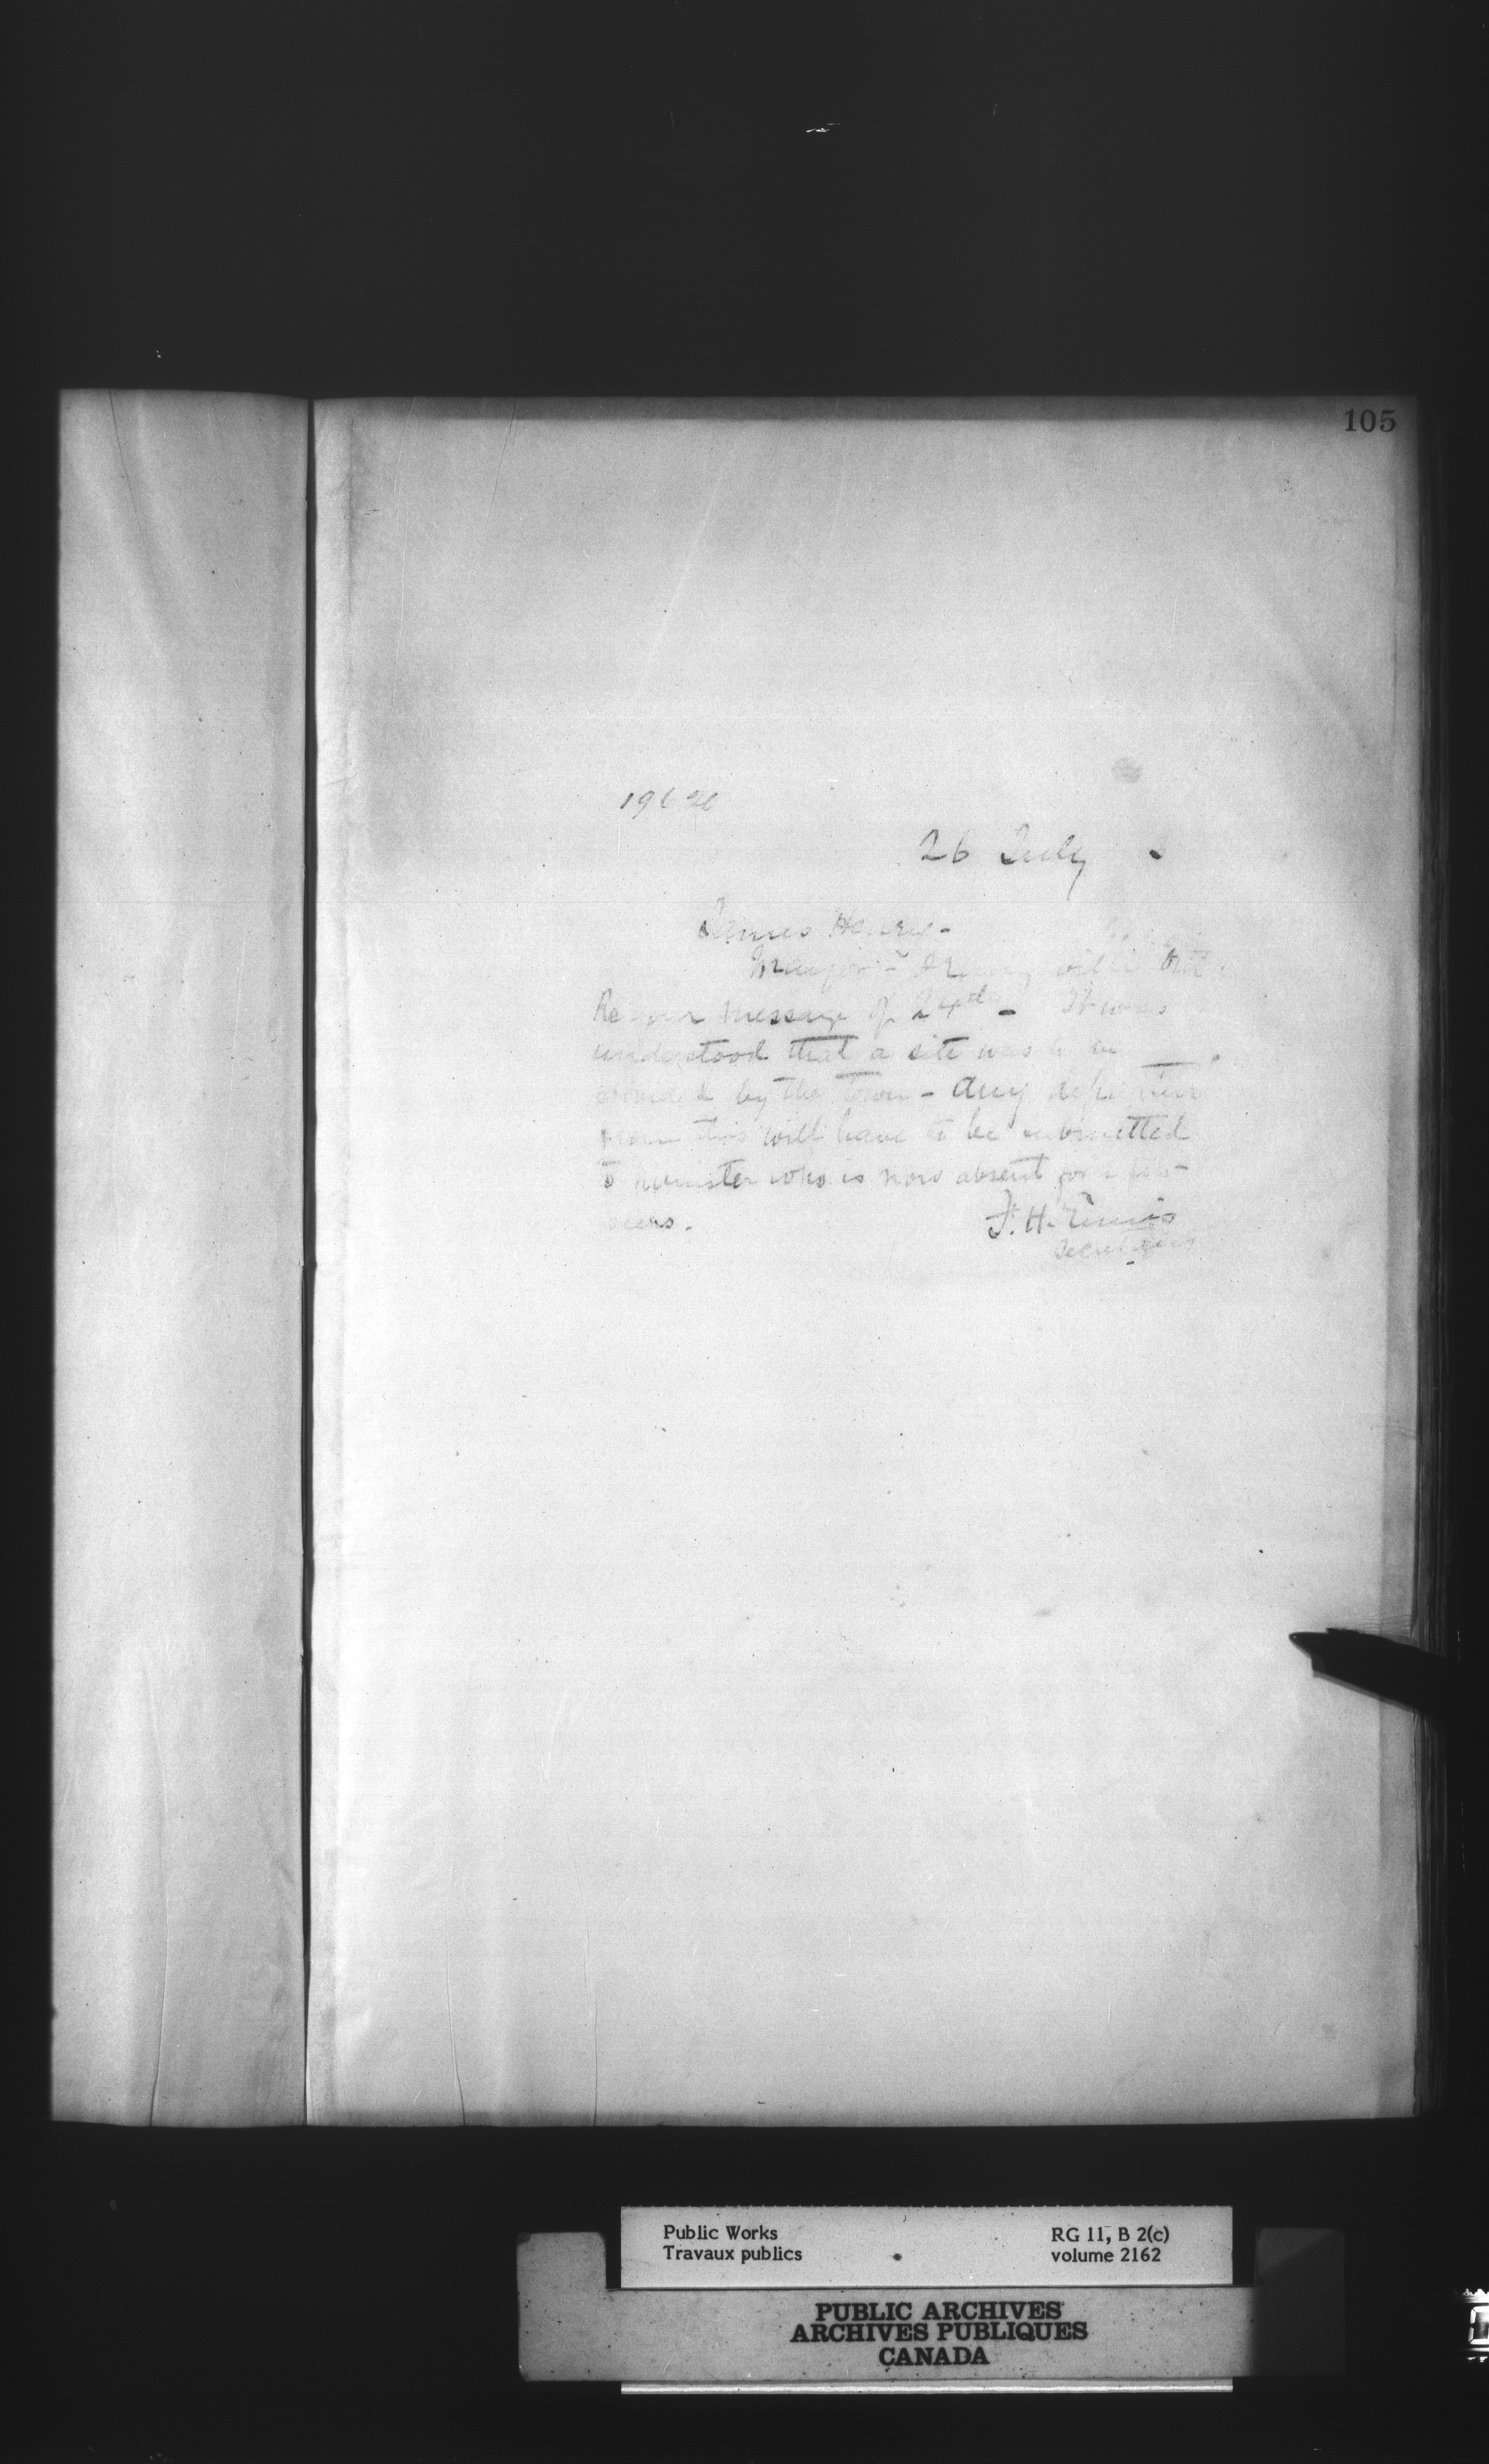 105
26 July
James Henry -
Mayor - Ont.
Re your message of 24th - It was
understood that a site was to be
provided by the town - Any
from this will have to be submitted
to minister who is now absent for a few
F. H. Ennis
Secretary
Public Works
Travaux publics
RG 11, B 2(c)
volume 2162
PUBLIC ARCHIVES
ARCHIVES PUBLIQUES
CANADA